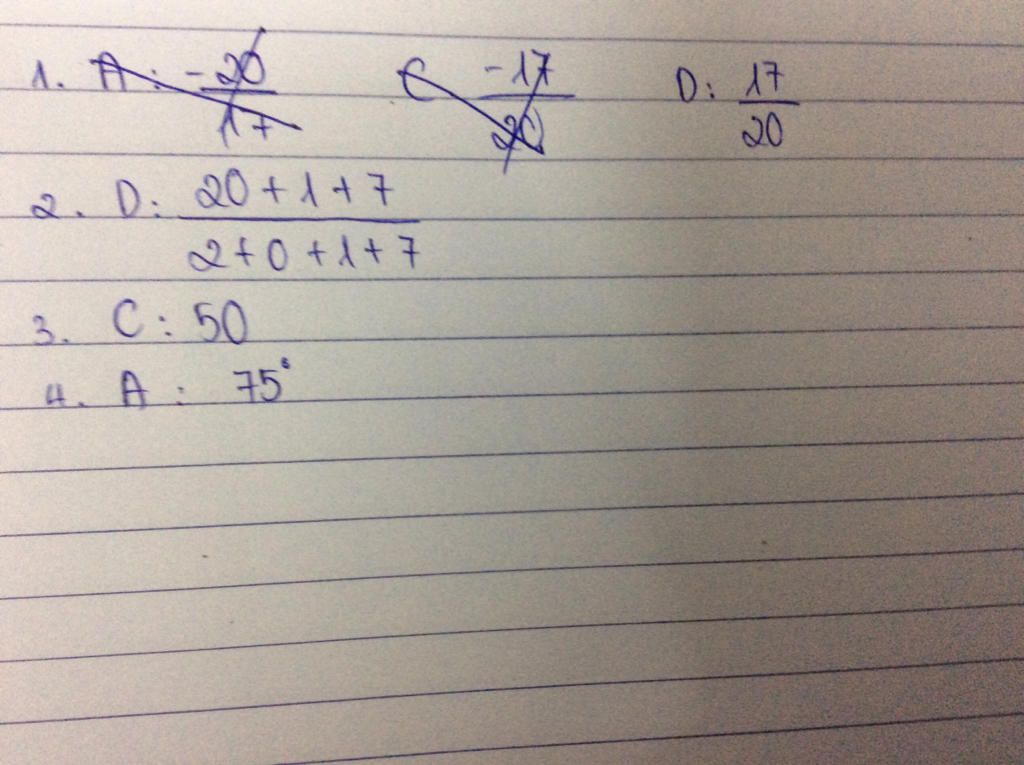 1. A: -20/17 C -17/20 D: 17/20
2. D: 20+1+7/2+0+1+7
3. C: 50
4. A: 75°